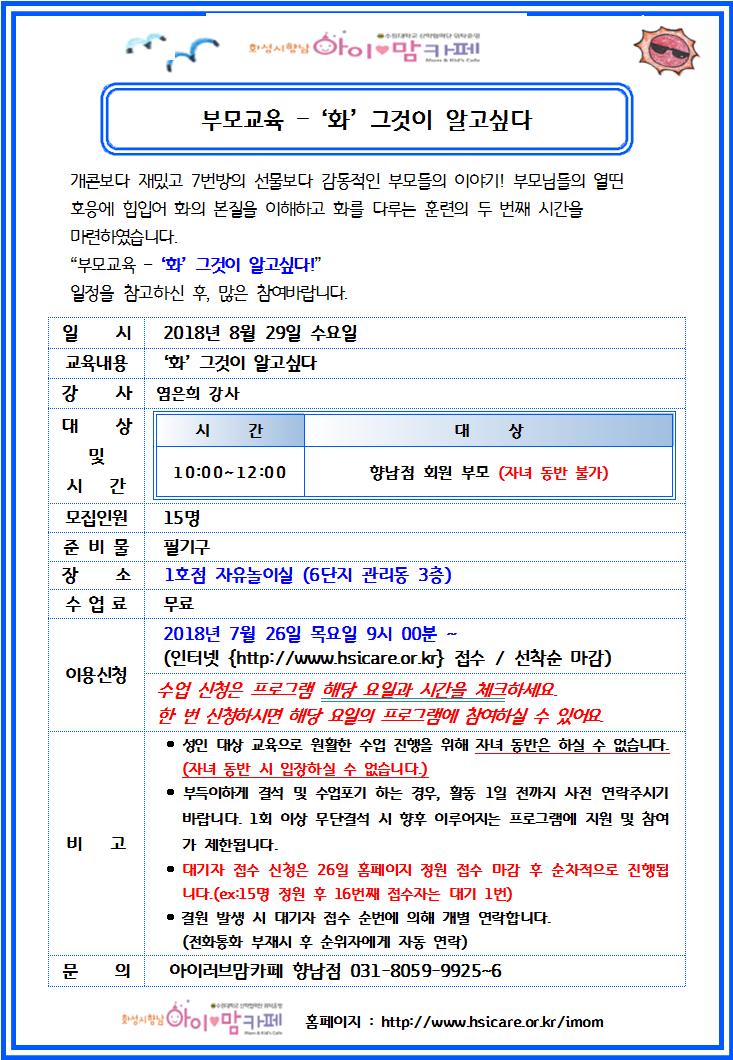 수원대학교 산학협력단 위탁운영
화성시향남 아이♥맘카페
Mom & Kid's Cafe
부모교육 – ‘화’ 그것이 알고싶다
개콘보다 재밌고 7번방의 선물보다 감동적인 부모들의 이야기! 부모님들의 열띤
호응에 힘입어 화의 본질을 이해하고 화를 다루는 훈련의 두 번째 시간을
마련하였습니다.
“부모교육 – ‘화’ 그것이 알고싶다!”
일정을 참고하신 후, 많은 참여바랍니다.
일 시 2018년 8월 29일 수요일
교육내용 ‘화’ 그것이 알고싶다
강 사 염은희 강사
대 상
및
시 간
시 간 대 상
10:00~12:00 향남점 회원 부모 (자녀 동반 불가)
모집인원 15명
준 비 물 필기구
장 소 1호점 자유놀이실 (6단지 관리동 3층)
수 업 료 무료
이용신청
2018년 7월 26일 목요일 9시 00분 ~
(인터넷 {http://www.hsicare.or.kr} 접수 / 선착순 마감)
수업 신청은 프로그램 해당 요일과 시간을 체크하세요.
한 번 신청하시면 해당 요일의 프로그램에 참여하실 수 있어요.
비 고
• 성인 대상 교육으로 원활한 수업 진행을 위해 자녀 동반은 하실 수 없습니다.
(자녀 동반 시 입장하실 수 없습니다.)
• 부득이하게 결석 및 수업포기 하는 경우, 활동 1일 전까지 사전 연락주시기
바랍니다. 1회 이상 무단결석 시 향후 이루어지는 프로그램에 지원 및 참여
가 제한됩니다.
• 대기자 접수 신청은 26일 홈페이지 정원 접수 마감 후 순차적으로 진행됩
니다.(ex:15명 정원 후 16번째 접수자는 대기 1번)
• 결원 발생 시 대기자 접수 순번에 의해 개별 연락합니다.
(전화통화 부재시 후 순위자에게 자동 연락)
문 의 아이러브맘카페 향남점 031-8059-9925~6
수원대학교 산학협력단 위탁운영
화성시향남 아이♥맘카페
Mom & Kid's Cafe
홈페이지 : http://www.hsicare.or.kr/imom